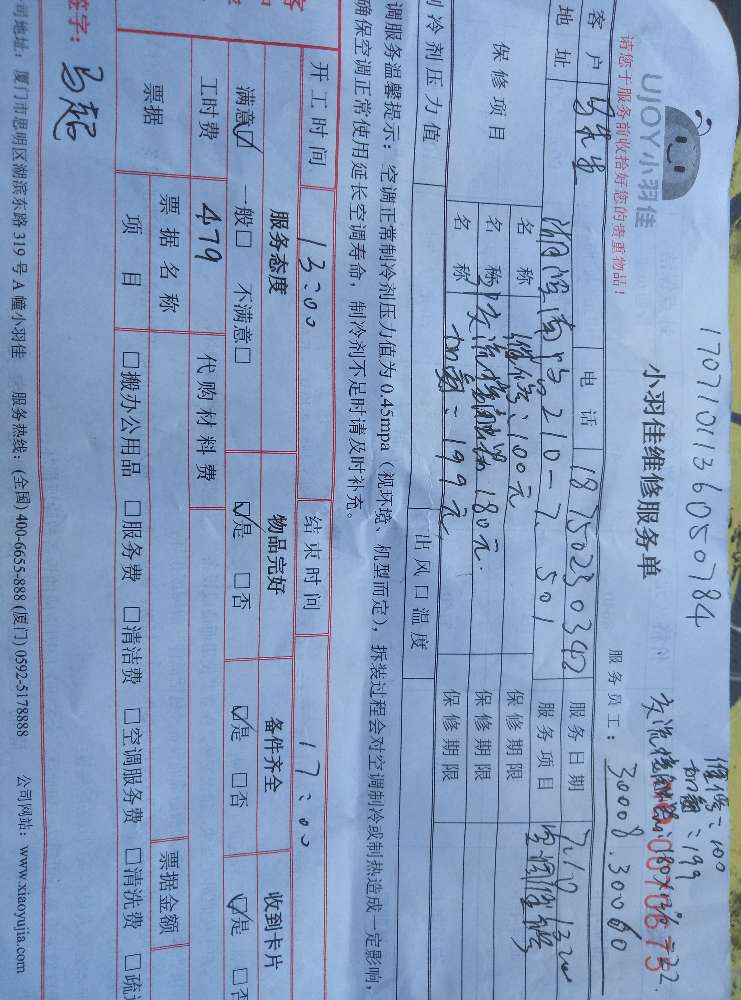 1707101136050784
UJOY小羽佳
小羽佳维修服务单
请您于服务前收拾好您的贵重物品！
服务员工：30008.30060
维修：100
加氟：199
客户
电话 18750230342
服务日期 7/10
地址
210-7.501
服务项目 空调维修
保修项目
名称 维修：100元 保修期限
名称 180元. 保修期限
名称 加氟：199元 保修期限
制冷剂压力值
出风口温度
调服务温馨提示：空调正常制冷剂压力值为0.45mpa（视环境、机型而定），拆装过程会对空调制冷或制热造成一定影响，
确保空调正常使用延长空调寿命，制冷剂不足时请及时补充。
开工时间 13:00 结束时间 17:00
服务态度 物品完好 备件齐全 收到卡片
满意☑ 一般□ 不满意□ ☑是 □否 ☑是 □否 ☑是 □否
工时费 479 代购材料费
票据 票据名称 票据金额
项目 □搬办公用品 □服务费 □清洁费 □空调服务费 □清洗费
签字：
司地址：厦门市思明区湖滨东路319号A幢小羽佳 服务热线：(全国) 400-6655-888 (厦门) 0592-5178888 公司网站：www.xiaoyujia.com